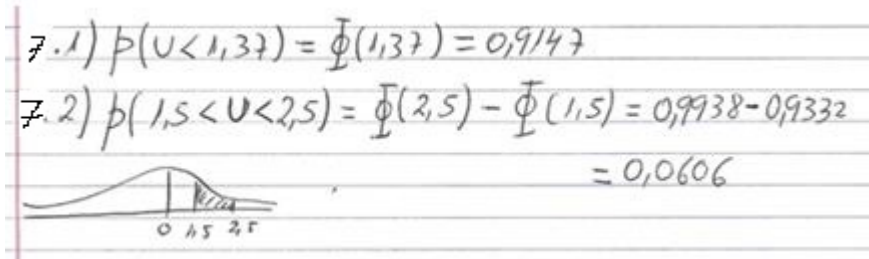 7.1) p(U<1,37) = Φ(1,37) = 0,9147
7.2) p(1,5<U<2,5) = Φ(2,5) - Φ(1,5) = 0,9938-0,9332
= 0,0606
0 1,5 2,5